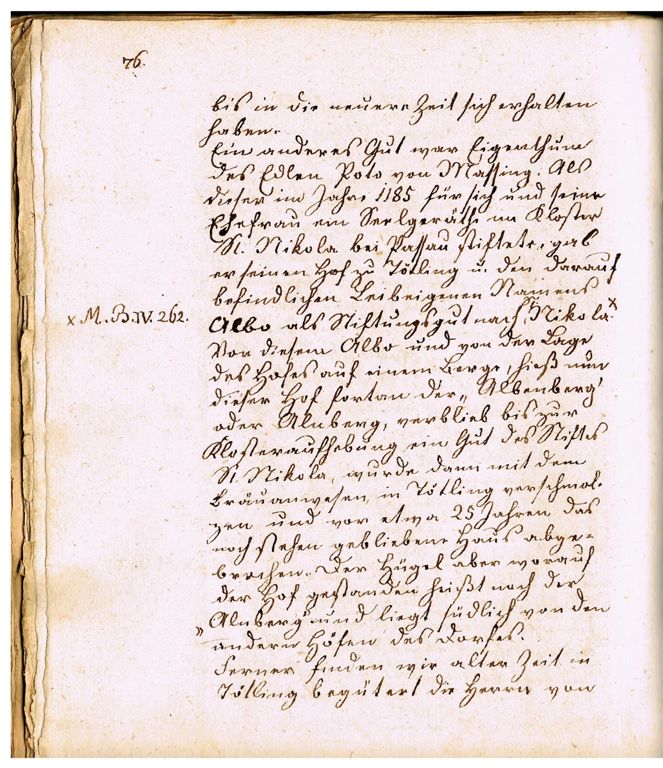 76.
bis in die neuere Zeit sich erhalten
haben.
Ein anderes Gut war Eigenthum
des Edlen Poto von Massing. Als
dieser im Jahre 1185 für sich und seine
Ehefrau ein Seelgeräthe im Kloster
St. Nikola bei Passau stiftete, gab
er seinen Hof zu Tötling u. den darauf
befindlichen Leibeigenen Namens
x M. B. IV. 262.
Albo als Stiftungsgut nach St. Nikola. x
Von diesem Albo und von der Lage
des Hofes auf einem Berge, hieß nun
dieser Hof fortan der „Albenberg"
oder Alnberg, verblieb bis zur
Klosteraufhebung ein Gut des Stiftes
St. Nikola, wurde dann mit dem
Bräuanwesen in Tötling verschmol-
zen und vor etwa 25 Jahren das
noch stehen gebliebene Haus abge-
brochen. Der Hügel aber worauf
der Hof gestanden heißt noch der
„Alnberg" und liegt südlich von den
andern Höfen des Dorfes.
Ferner finden wir alter Zeit in
Tötling begütert die Herrn von